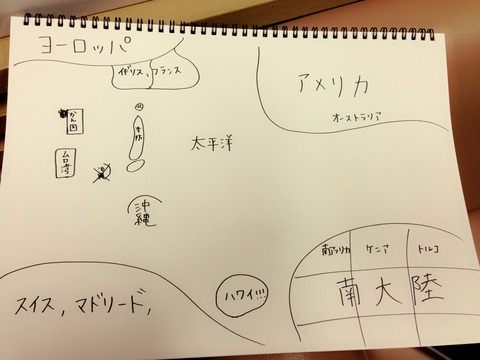 ヨーロッパ
イギリス、フランス
アメリカ
オーストラリア
かん国
本州
太平洋
台湾
沖縄
南アフリカ ケニア トルコ
南大陸
ハワイ!!!
スイス, マドリード,